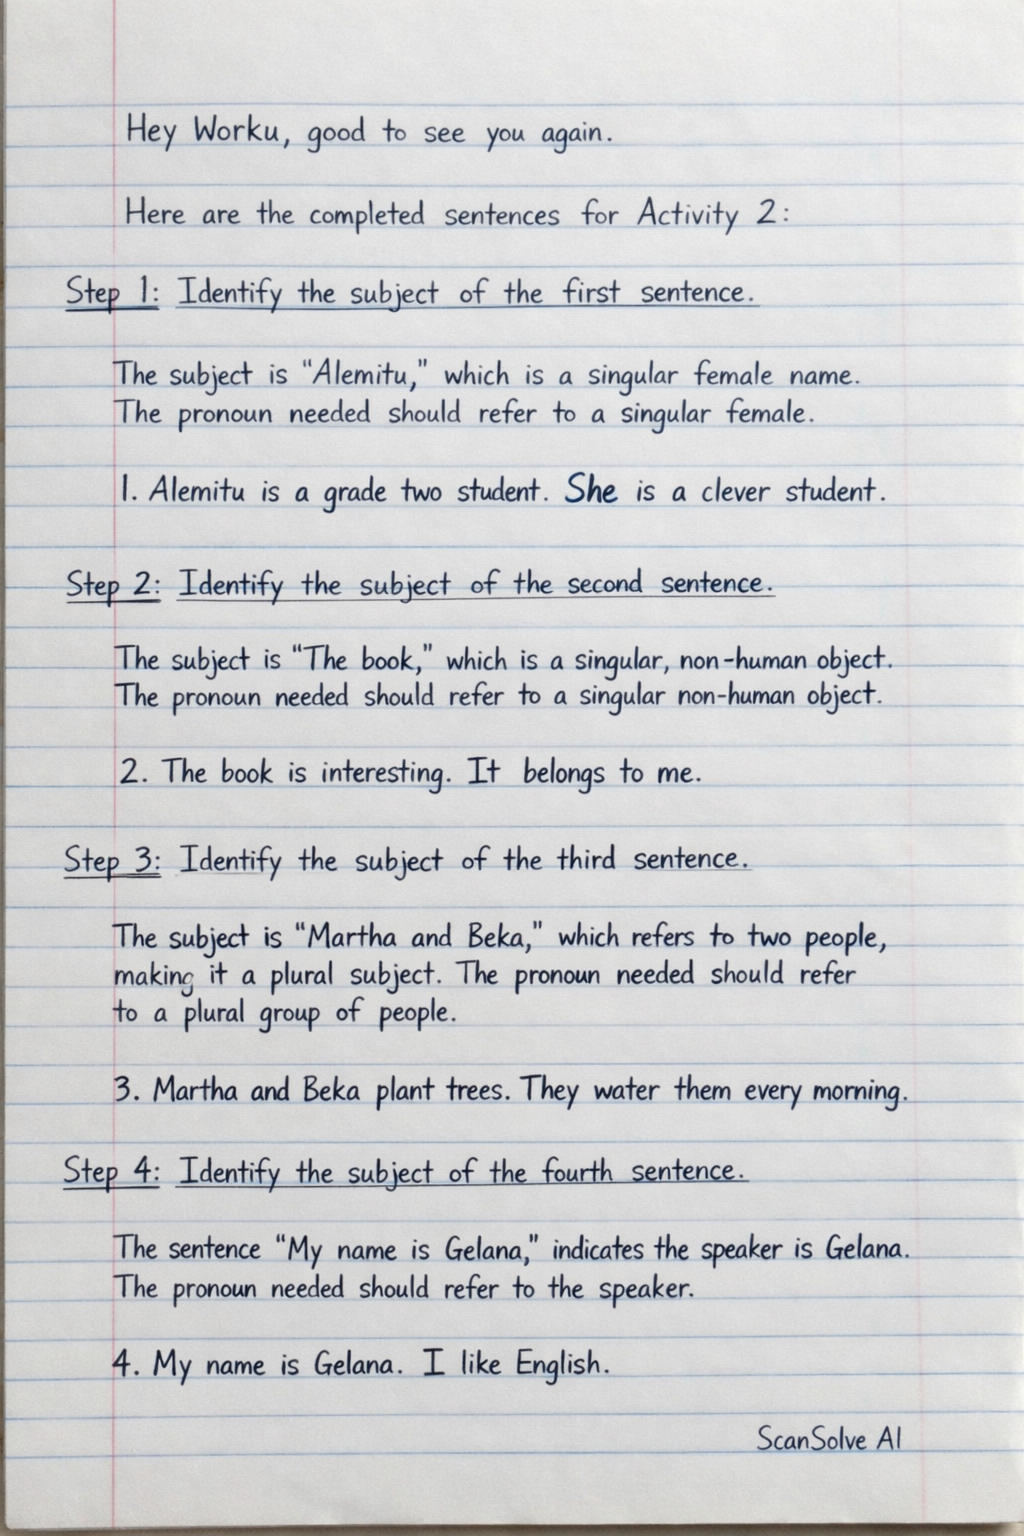 Hey Worku, good to see you again.
Here are the completed sentences for Activity 2:
Step 1: Identify the subject of the first sentence.
The subject is "Alemitu," which is a singular female name.
The pronoun needed should refer to a singular female.
1. Alemitu is a grade two student. She is a clever student.
Step 2: Identify the subject of the second sentence.
The subject is "The book," which is a singular, non-human object.
The pronoun needed should refer to a singular non-human object.
2. The book is interesting. It belongs to me.
Step 3: Identify the subject of the third sentence.
The subject is "Martha and Beka," which refers to two people,
making it a plural subject. The pronoun needed should refer
to a plural group of people.
3. Martha and Beka plant trees. They water them every morning.
Step 4: Identify the subject of the fourth sentence.
The sentence "My name is Gelana," indicates the speaker is Gelana.
The pronoun needed should refer to the speaker.
4. My name is Gelana. I like English.
ScanSolve AI